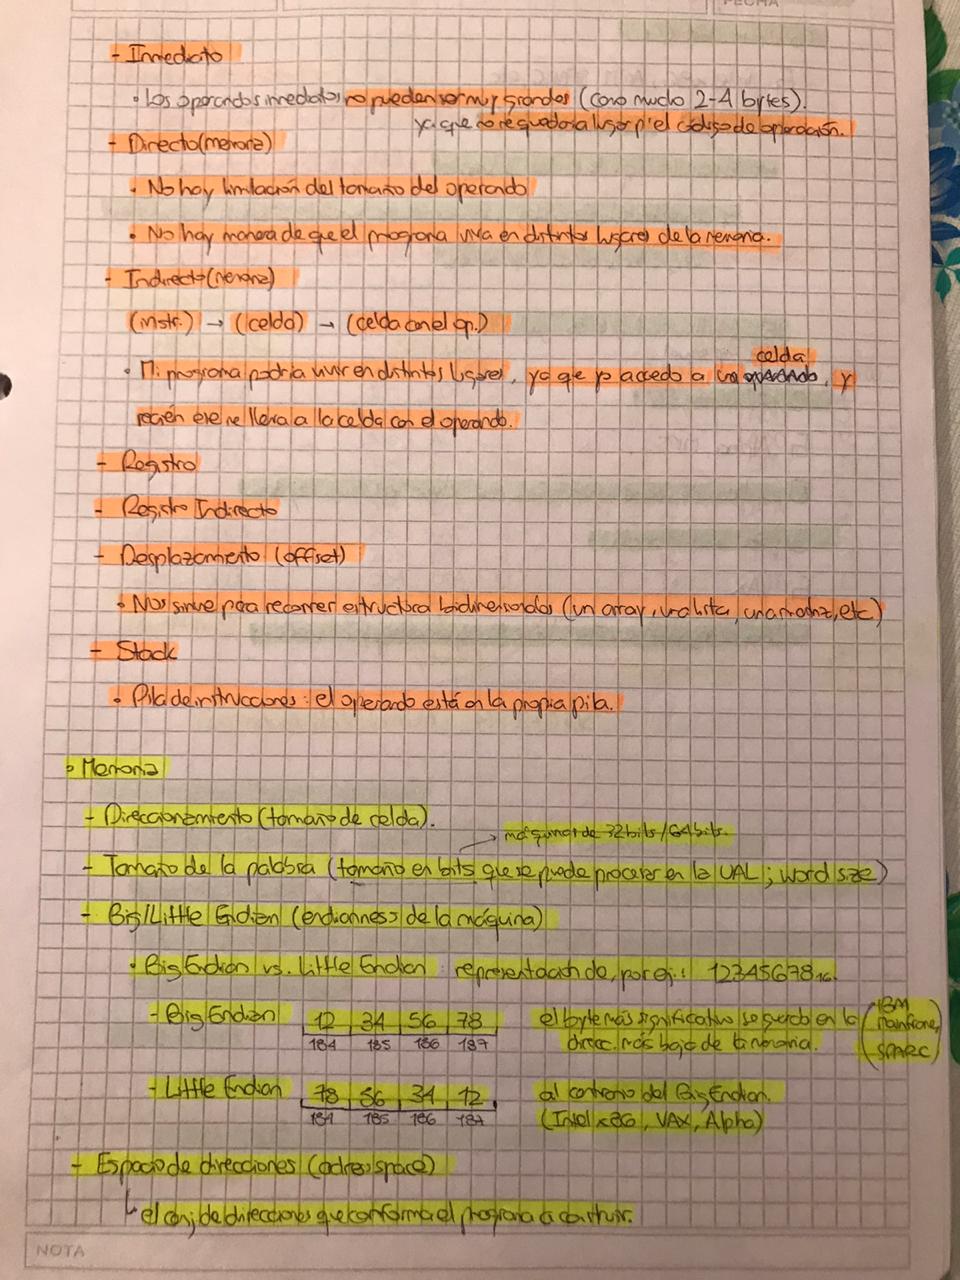 FECHA
- Inmediato
• Los operandos inmediatos no pueden ser muy grandes (como mucho 2-4 bytes).
ya que no quedaría lugar p/ el código de operación.
- Directo (memoria)
• No hay limitación del tamaño del operando
• No hay manera de que el programa viva en distintos lugares de la memoria.
- Indirecto (memoria)
(instr.) → (celda) → (celda con el op.)
celda
• Mi programa podría vivir en distintos lugares, ya que yo accedo a una operando, y
recién ese me lleva a la celda con el operando.
- Registro
- Registro Indirecto
- Desplazamiento (offset)
• Nos sirve para recorrer estructura bidimensionales (un array, una lista, una matriz, etc)
- Stack
• Pila de instrucciones: el operando está en la propia pila.
• Memoria
- Direccionamiento (tamaño de celda).
→ máquinas de 32 bits/64 bits.
- Tamaño de la palabra (tamaño en bits que se puede procesar en la UAL; word size)
- Big/Little Endian (endianness de la máquina)
• Big Endian vs. Little Endian: representación de, por ej.: 12345678₁₆.
- Big Endian 12 34 56 78 el byte más significativo se guarda en la (IBM
184 185 186 187 direcc. más baja de la memoria. Mainframe,
SPARC)
- Little Endian 78 56 34 12 al contrario del Big Endian.
184 185 186 187 (Intel x86, VAX, Alpha)
- Espacio de direcciones (adress space)
↳ el conj. de direcciones que conforma el programa a construir.
NOTA